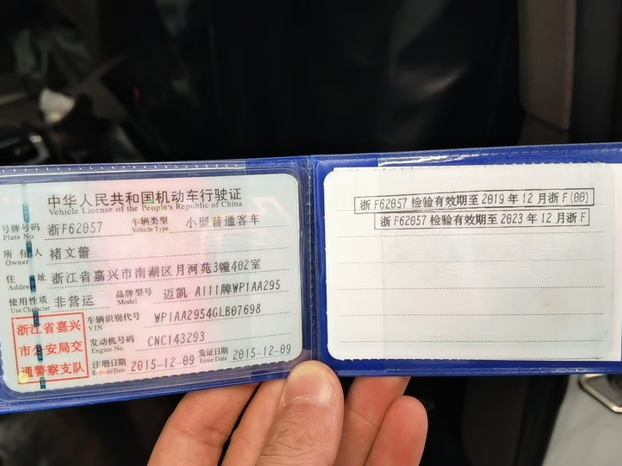 中华人民共和国机动车行驶证
Vehicle License of the People's Republic of China
号牌号码 Plate No. 浙F62057 车辆类型 Vehicle Type 小型普通客车
所有人 Owner 褚文蕾
住址 Address 浙江省嘉兴市南湖区月河苑3幢402室
使用性质 Use Character 非营运 品牌型号 Model 迈凯 A111牌WP1AA295
车辆识别代号 VIN WP1AA2954GLB07698
发动机号码 Engine No. CNC143293
注册日期 Register Date 2015-12-09 发证日期 Issue Date 2015-12-09
浙江省嘉兴
市公安局交
通警察支队
浙 F62057 检验有效期至 2019 年 12 月浙 F(00)
浙 F62057 检验有效期至 2023 年 12 月浙 F